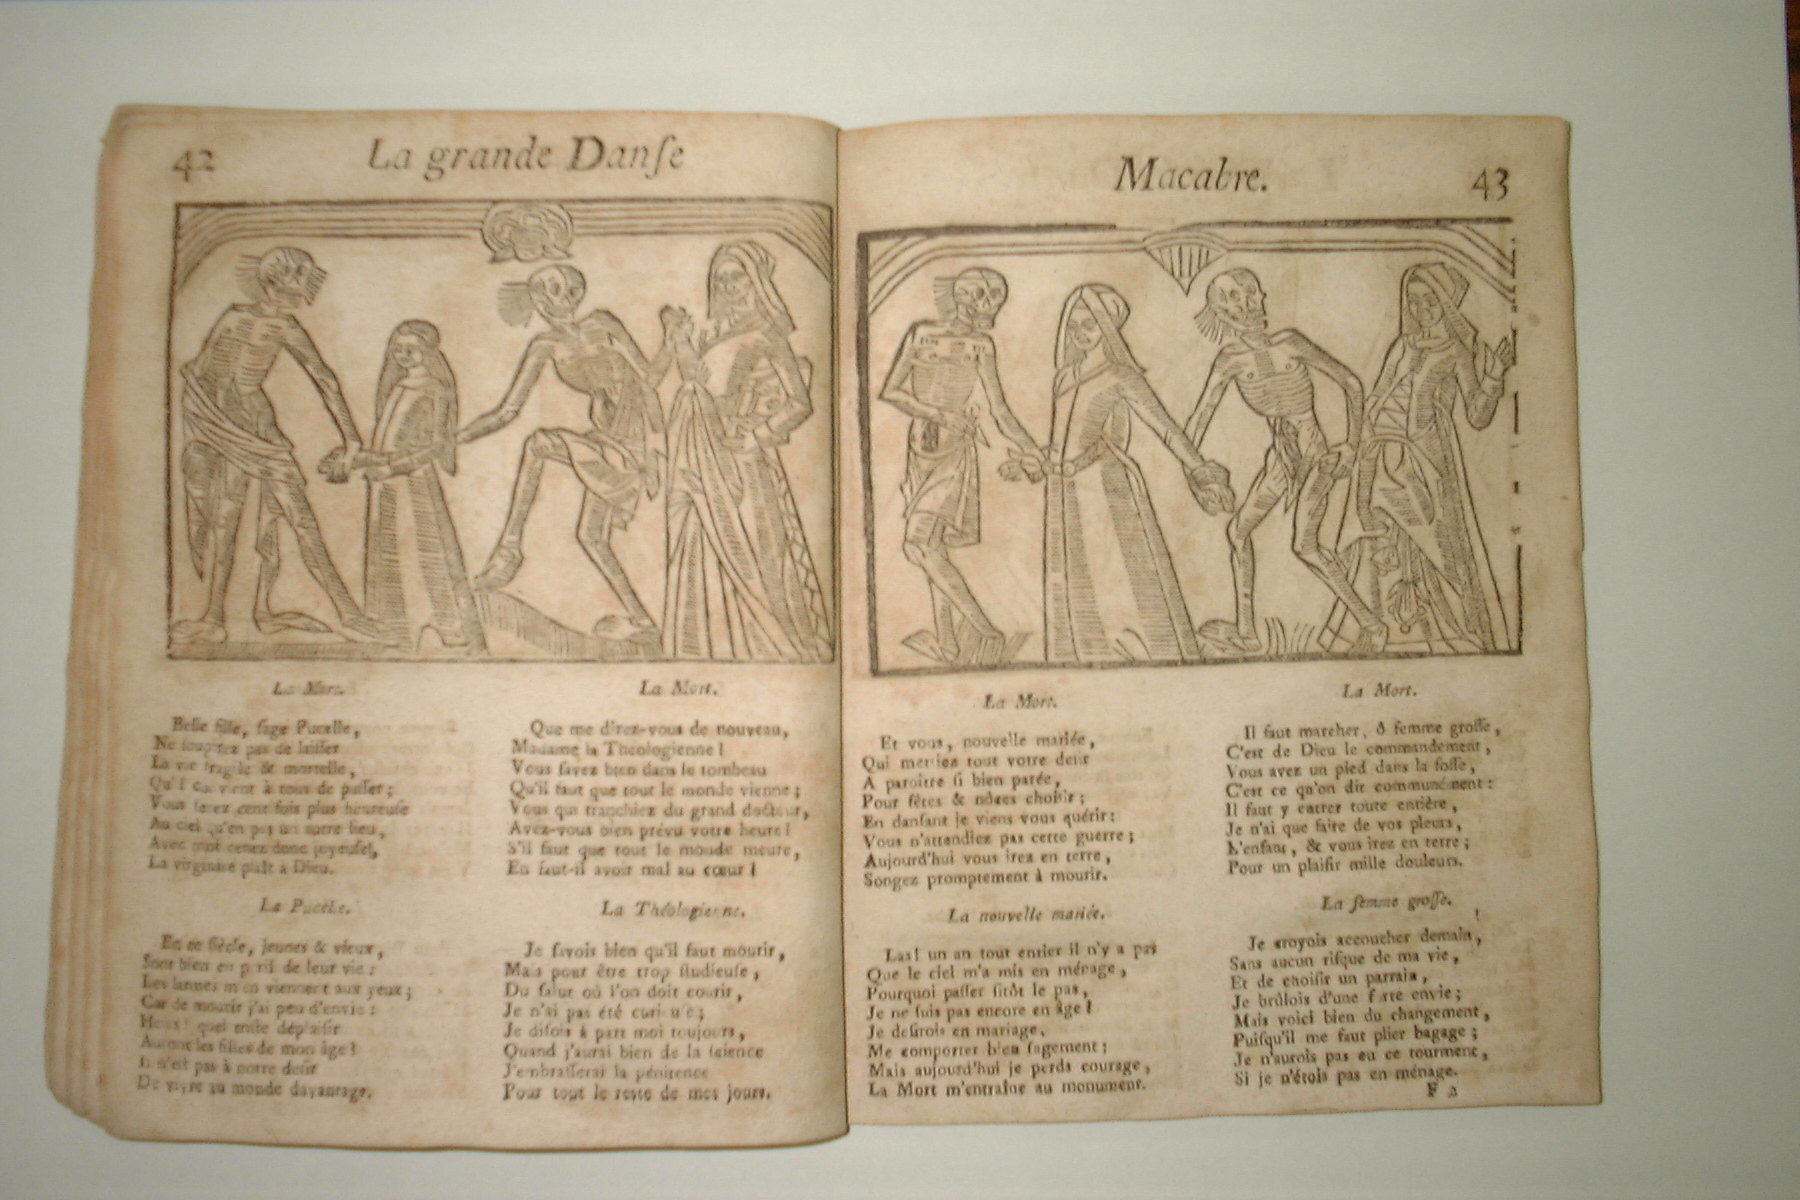 42
La grande Danſe
La Mort.
Belle fille, ſage Pucelle,
Ne pas de laiſſer
La vie fragile & mortelle,
Qu'il convient à tous de paſſer ;
Vous ſerez cent fois plus heureuſe
Au ciel qu'en pas un autre lieu,
Avec moi venez donc joyeuſe,
La virginité plaît à Dieu.
La Pucelle.
En ce ſiècle, jeunes & vieux,
Sont bien en péril de leur vie :
Les larmes m'en viennent aux yeux ;
Car de mourir j'ai peu d'envie :
quel déplaiſir
Auront les filles de mon âge !
Il n'eſt pas à notre deſir
De vivre au monde davantage.
La Mort.
Que me direz-vous de nouveau,
Madame la Théologienne !
Vous ſavez bien dans le tombeau
Qu'il faut que tout le monde vienne ;
Vous qui tranchiez du grand docteur,
Avez-vous bien prévu votre heure !
S'il faut que tout le monde meure,
En faut-il avoir mal au cœur !
La Théologienne.
Je ſavois bien qu'il faut mourir,
Mais pour être trop ſtudieuſe,
Du ſalut où l'on doit courir,
Je n'ai pas été curieuſe ;
Je diſois à part moi toujours,
Quand j'aurai bien de la ſcience
J'embraſſerai la pénitence
Pour tout le reſte de mes jours.
Macabre.
43
La Mort.
Et vous, nouvelle mariée,
Qui metiez tout votre deſir
A paroître ſi bien parée,
Pour fêtes & nôces choiſir ;
En danſant je viens vous quérir :
Vous n'attendiez pas cette guerre ;
Aujourd'hui vous irez en terre,
Songez promptement à mourir.
La nouvelle mariée.
Las ! un an tout entier il n'y a pas
Que le ciel m'a mis en ménage,
Pourquoi paſſer ſitôt le pas,
Je ne ſuis pas encore en âge !
Je deſirois en mariage,
Me comporter bien ſagement ;
Mais aujourd'hui je perds courage,
La Mort m'entraîne au monument.
La Mort.
Il faut marcher, ô femme groſſe,
C'eſt de Dieu le commandement,
Vous avez un pied dans la foſſe,
C'eſt ce qu'on dit communément :
Il faut y entrer toute entière,
Je n'ai que faire de vos pleurs,
L'enfant, & vous irez en terre ;
Pour un plaiſir mille douleurs.
La femme groſſe.
Je croyois accoucher demain,
Sans aucun riſque de ma vie,
Et de choiſir un parrain,
Je brûlois d'une forte envie ;
Mais voici bien du changement,
Puiſqu'il me faut plier bagage ;
Je n'aurois pas eu ce tourment,
Si je n'étois pas en ménage.
F 2